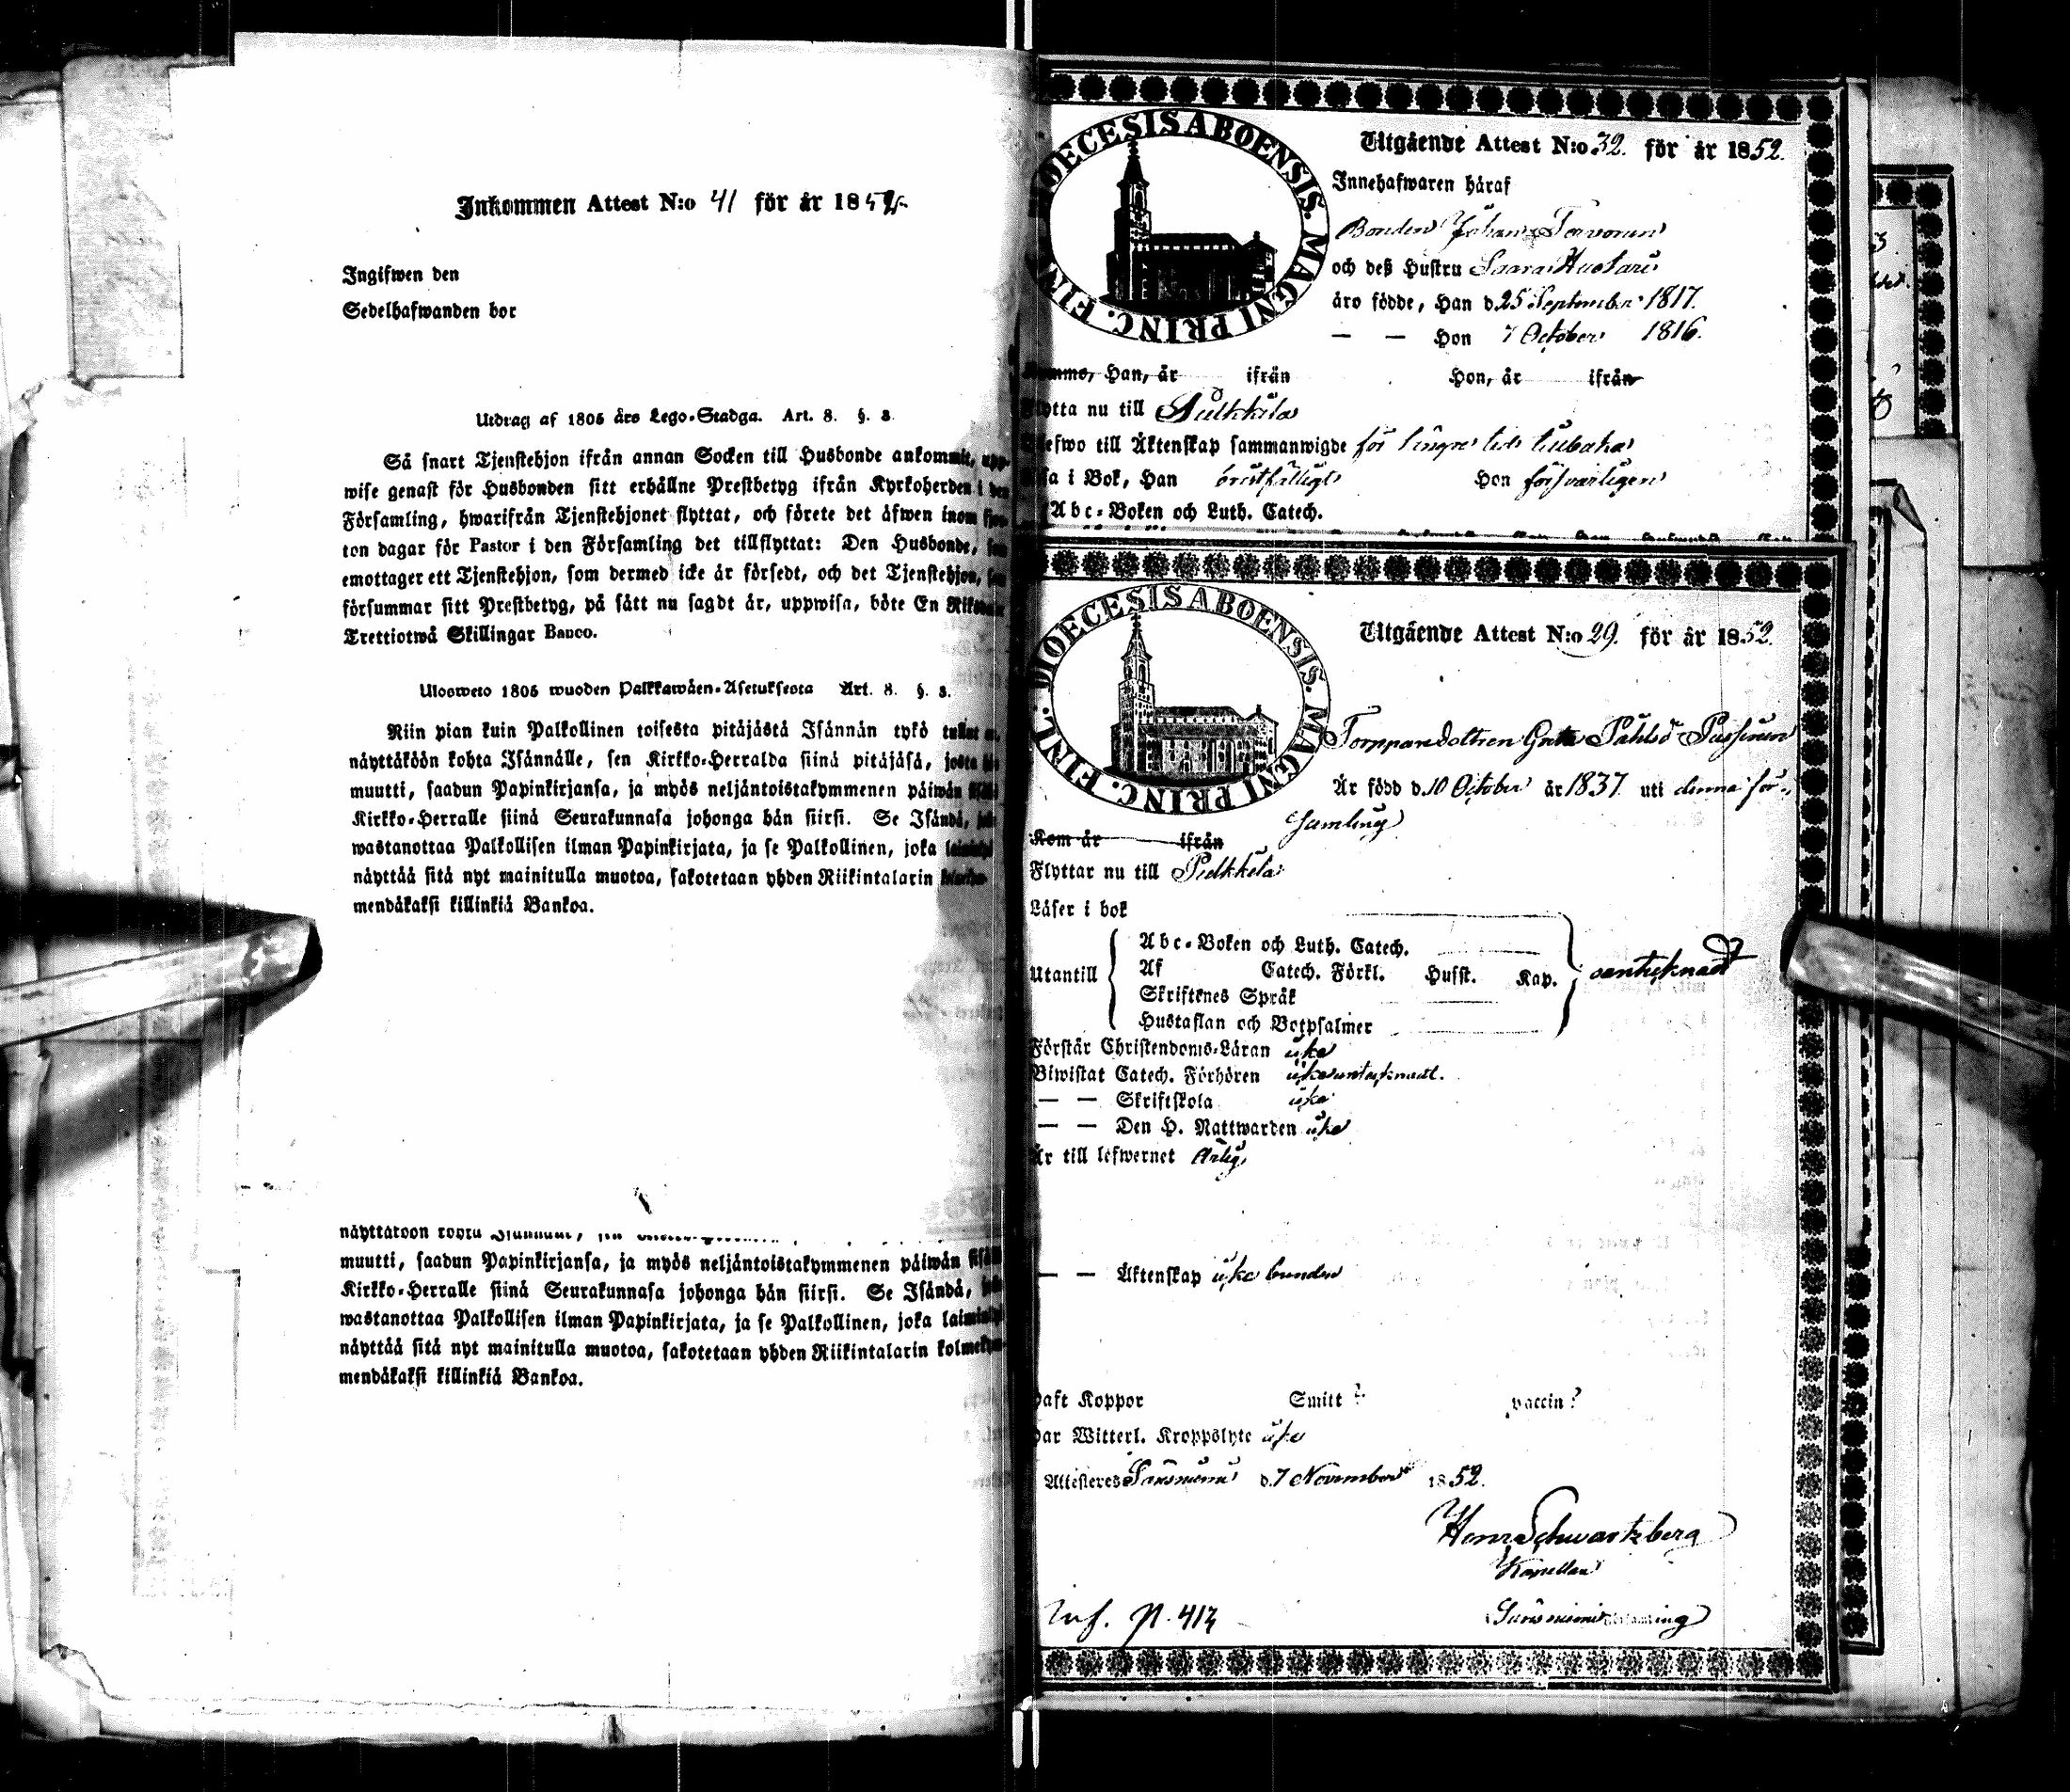 Inkommen Attest N:o 41 för år 1852.
Ingifwen den
Sedelhafwanden bor
Utdrag af 1805 års Lego-Stadga. Art. 8. §. 3.
Så snart Tjenstehjon ifrån annan Socken till Husbonde ankommit, upp-
wise genast för Husbonden sitt erhållne Prestbetyg ifrån Kyrkoherden i den
Församling, hwarifrån Tjenstehjonet flyttat, och förete det äfwen inom fjor-
ton dagar för Pastor i den Församling det tillflyttat: Den Husbonde, som
emottager ett Tjenstehjon, som dermed icke är försedt, och det Tjenstehjon, som
försummar sitt Prestbetyg, på sätt nu sagdt är, uppwisa, böte En Riksdaler
Trettiotwå Skillingar Banco.
Ulosweto 1805 wuoden Palkkawäen-Asetuksesta Art. 8. §. 3.
Niin pian kuin Palkollinen toisesta pitäjästä Isännän tykö tullut
näyttäköön kohta Isännälle, sen Kirkko-Herralda siinä pitäjäsä, josta hän
muutti, saadun Papinkirjansa, ja myös neljäntoistakymmenen päiwän sisällä
Kirkko-Herralle siinä Seurakunnasa johonga hän siirsi. Se Isändä, joka
wastanottaa Palkollisen ilman Papinkirjata, ja se Palkollinen, joka laiminlyö
näyttää sitä nyt mainitulla muotoa, sakotetaan yhden Riikintalarin kolmekym-
mendäkaksi killinkiä Bankoa.
muutti, saadun Papinkirjansa, ja myös neljäntoistakymmenen päiwän sisällä
Kirkko-Herralle siinä Seurakunnasa johonga hän siirsi. Se Isändä, joka
wastanottaa Palkollisen ilman Papinkirjata, ja se Palkollinen, joka laiminlyö
näyttää sitä nyt mainitulla muotoa, sakotetaan yhden Riikintalarin kolmekym-
mendäkaksi killinkiä Bankoa.
DIOECESIS ABOENSIS. MAGNI PRINC. FINL.
Utgående Attest N:o 32. för år 1852.
Innehafwaren häraf
Bonden Johan Tervonen
och deß Hustru Saara Huotari
äro födde, Han d. 25 September 1817.
— — Hon 7 October 1816.
Han, år ifrån Hon, år ifrån
Flytta nu till Pulkkila
Blefwo till Äktenskap sammanwigde för längre tid tillbaka
Läsa i Bok, Han Hon försvarligen
Abc-Boken och Luth. Catech.
DIOECESIS ABOENSIS. MAGNI PRINC. FINL.
Utgående Attest N:o 29. för år 1852.
Torppare dottren Greta Påhlsdr
Är född d. 10 October år 1837 uti denna för-
samling
Kom år ifrån
Flyttar nu till Pulkkila
Läser i bok
Utantill
Abc-Boken och Luth. Catech.
Af Catech. Förkl. Husst. Kap.
Skriftenes Språk
Hustaflan och Botpsalmer
oanteknadt
Förstår Christendoms-Läran icke
Biwistat Catech. Förhören icke anteknadt.
— — Skriftskola icke
— — Den H. Nattwarden icke
Är till lefwernet ärlig
— — Äktenskap icke bunden
Haft Koppor Smitt ? vaccin ?
Har Witterl. Kroppslyte icke
Attesteres Säresniemi d. 7 November 1852.
Henr Schwartzberg
Kapellan
Säresniemi
Inf. p. 413